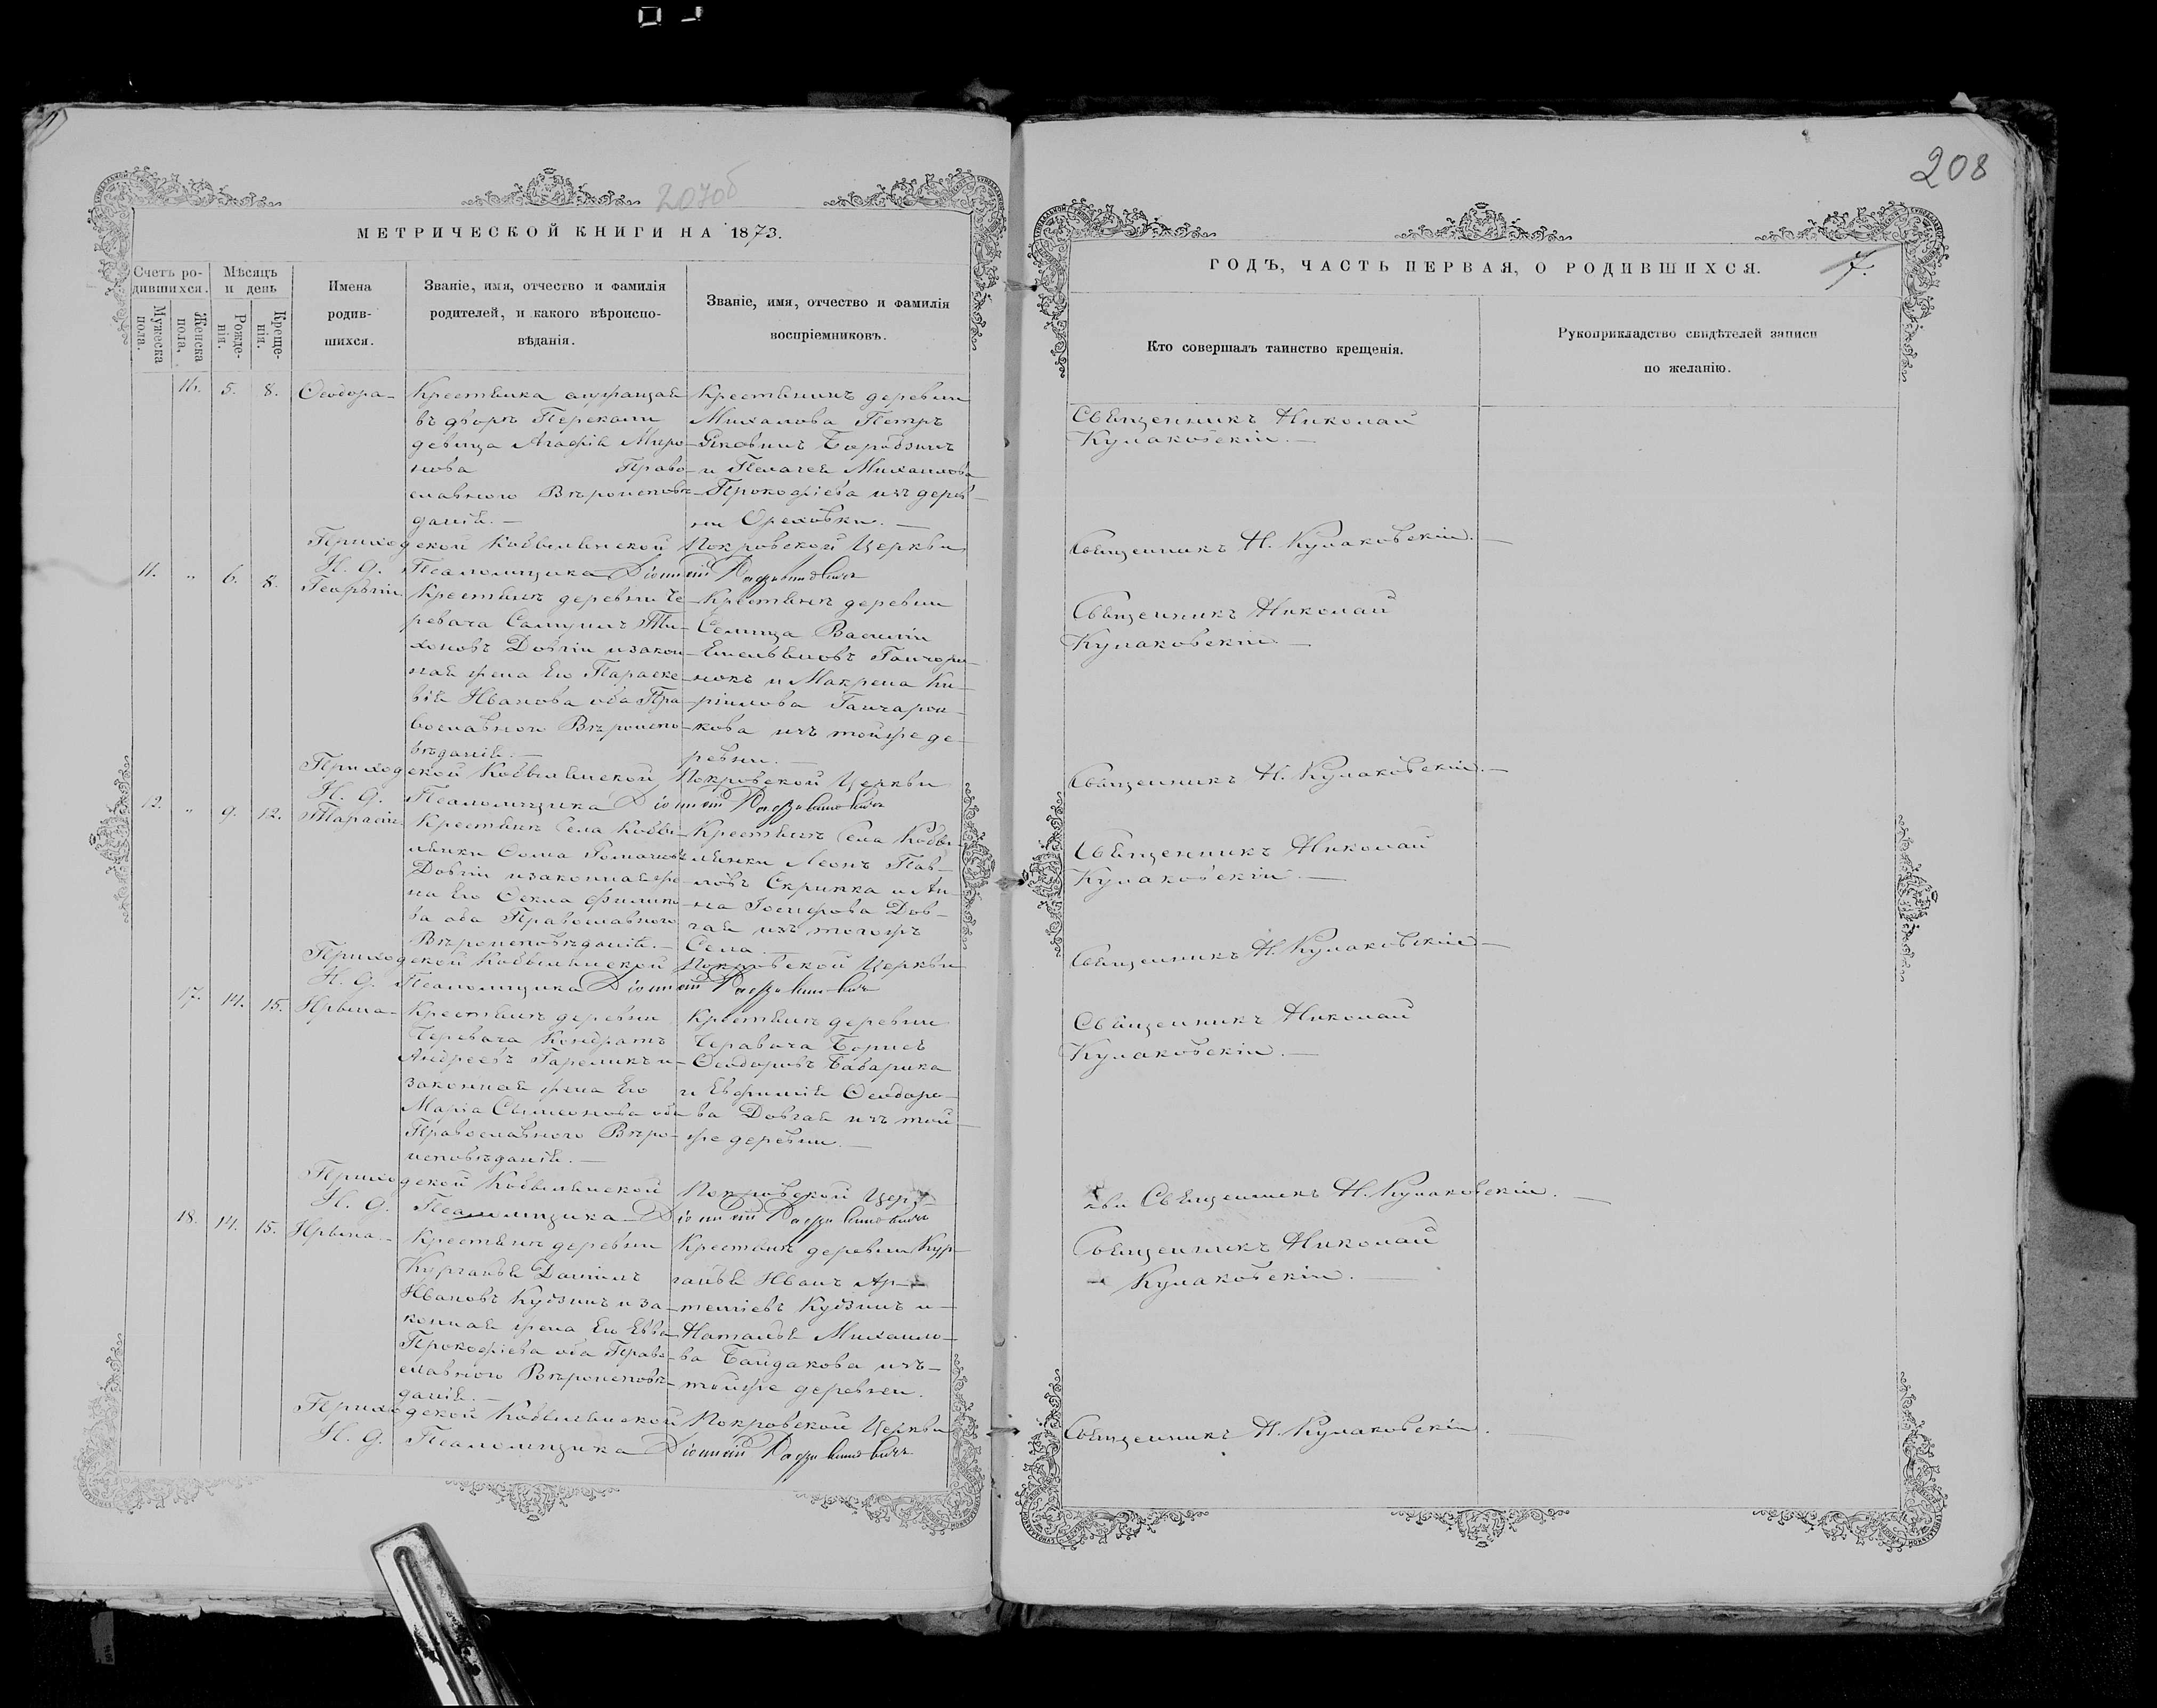 208
207об
МЕТРИЧЕСКОЙ КНИГИ НА 1873.
Счетъ ро-
дившихся.
Мужеска пола.
Женска пола.
Мѣсяцъ
и день
Рожде-
нія.
Креще-
нія.
Имена
родив-
шихся.
Званіе, имя, отчество и фамилія
родителей, и какого вѣроиспо-
вѣданія.
Званіе, имя, отчество и фамилія
воспріемниковъ.
16. 5. 8. Ѳеодора
Крестьянка служащая
въ дворѣ
девица Агафія Миро-
нова Право-
славнаго Вѣроисповѣ-
данія.
Крестьянинъ деревни
Михалова Петръ
Яковлевъ
и Пелагея Михаилова
Прокофіева изъ дерев-
ни Ореховки.
Приходской Кобылянской Покровской Церкви
И. д. Псаломщика Діонисій
11. " 6. 8. Георгій
Крестьянъ деревни Че-
ревача Самуилъ Ти-
хоновъ Довгій и закон-
ная жена Его Параске-
вія Иванова оба Пра-
вославнаго Вѣроиспо-
вѣданія.
Крестьянъ деревни
Селища Василій
Емельяновъ Ганчаре-
нокъ и Макрена Ки-
рилова Ганчарен-
кова изъ тойже де-
ревни.
Приходской Кобылянской Покровской Церкви
И. д. Псаломщика Діонисій
12. " 9. 12. Тарасій
Крестьянъ Села Кобы-
лянки Ѳома Романовъ
Довгій и законная же-
на Его Ѳекла Филипо-
ва оба Православнаго
Вѣроисповѣданія.
Крестьянъ Села Кобы-
лянки Леонъ Пав-
ловъ Скрипка и Ан-
на Іосифова Дов-
гая изъ тогожъ
Села
Приходской Кобылянской Покровской Церкви
И. д. Псаломщика Діонисій
17. 14. 15. Ирына
Крестьянъ деревни
Черевача Кондратъ
Андреевъ Гареликъ и
законная жена Его
Марія Сымеонова оба
Православнаго Вѣро-
исповѣданія.
Крестьянъ деревни
Черавача Борисъ
Ѳеодоровъ Бабарика
и Евфимія Ѳеодоро-
ва Довгая изъ той-
же деревни.
Приходской Кобылянской Покровской Цер-
И. д. Псаломщика Діонисій
18. 14. 15. Ирына
Крестьянъ деревни
Курганья Даніилъ
Ивановъ Кудзинъ и за-
конная жена Его Евва
Прокофіева оба Право-
славнаго Вѣроисповѣ-
данія.
Крестьянъ деревни Кур-
ганья Иванъ Ар-
теміевъ Кудзинъ и
Наталья Михаило-
ва Байдакова изъ
тойже деревни.
Приходской Кобылянской Покровской Церкви
И. д. Псаломщика Діонисій
ГОДЪ, ЧАСТЬ ПЕРВАЯ, О РОДИВШИХСЯ. 7.
Кто совершалъ таинство крещенія.
Рукоприкладство свидѣтелей записи
по желанію.
Священникъ Николай
Кулаковскій.
Священникъ Н. Кулаковскій.
Священникъ Николай
Кулаковскій
Священникъ Н. Кулаковскій.
Священникъ Николай
Кулаковскій.
Священникъ Н. Кулаковскій
Священникъ Николай
Кулаковскій.
кви Священникъ Н. Кулаковскій.
Священникъ Николай
Кулаковскій.
Священникъ Н. Кулаковскій.